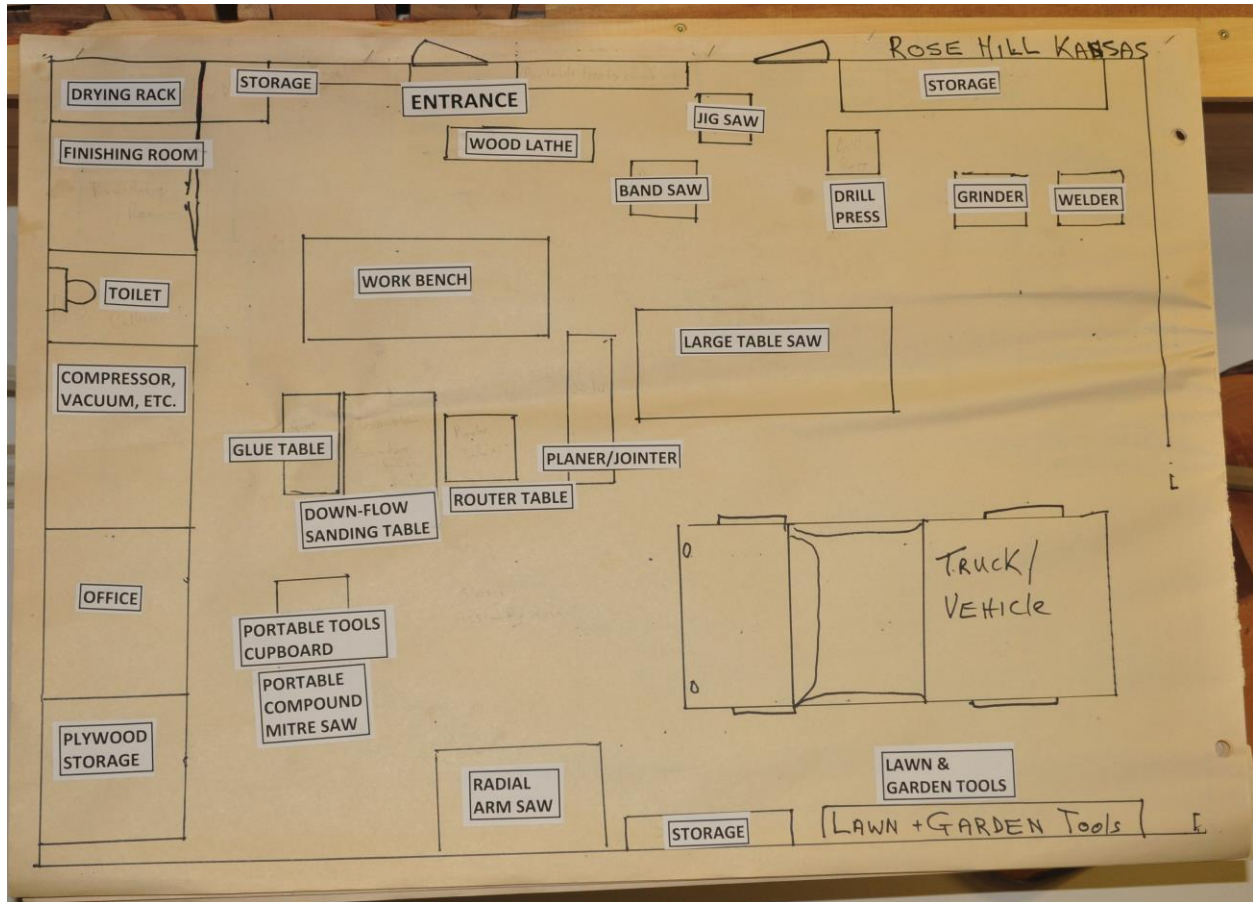 ROSE HILL KANSAS
DRYING RACK
STORAGE
ENTRANCE
STORAGE
JIG SAW
FINISHING ROOM
WOOD LATHE
BAND SAW
DRILL
PRESS
GRINDER
WELDER
TOILET
WORK BENCH
LARGE TABLE SAW
COMPRESSOR,
VACUUM, ETC.
GLUE TABLE
PLANER/JOINTER
DOWN-FLOW
SANDING TABLE
ROUTER TABLE
TRUCK/
VEHICLE
OFFICE
PORTABLE TOOLS
CUPBOARD
PORTABLE
COMPOUND
MITRE SAW
PLYWOOD
STORAGE
RADIAL
ARM SAW
STORAGE
LAWN &
GARDEN TOOLS
LAWN + GARDEN TOOLS